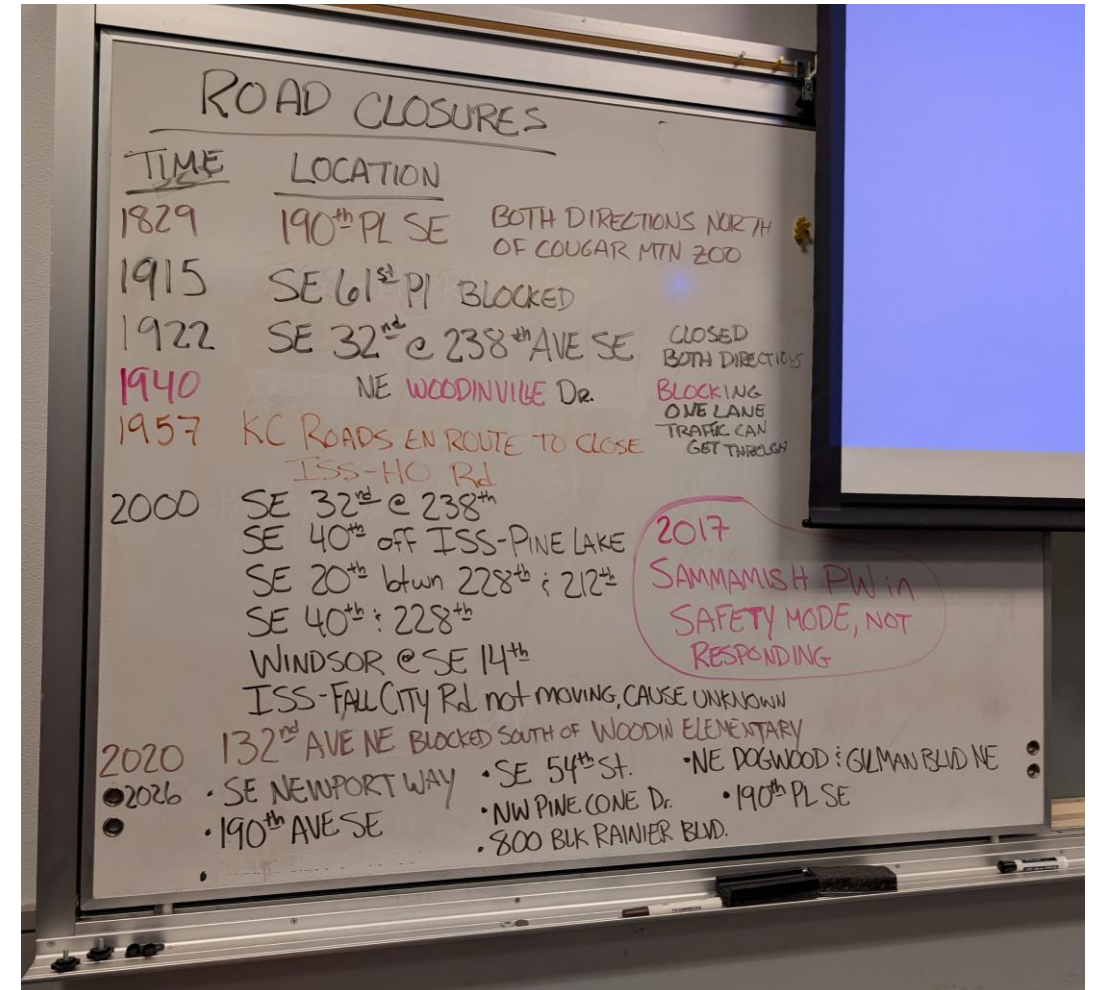 ROAD CLOSURES
TIME LOCATION
1829 190th PL SE BOTH DIRECTIONS NORTH
OF COUGAR MTN ZOO
1915 SE 61st Pl BLOCKED
1922 SE 32nd @ 238th AVE SE CLOSED
BOTH DIRECTIONS
1940 NE WOODINVILLE DR. BLOCKING
ONE LANE
TRAFFIC CAN
GET THROUGH
1957 KC ROADS EN ROUTE TO CLOSE
ISS-HO Rd
2000 SE 32nd @ 238th
SE 40th off ISS-PINE LAKE
SE 20th btwn 228th & 212th
SE 40th & 228th
WINDSOR @ SE 14th
ISS-FALL CITY Rd not moving, CAUSE UNKNOWN
2017
SAMMAMISH PW in
SAFETY MODE, NOT
RESPONDING
2020 132nd AVE NE BLOCKED SOUTH OF WOODIN ELEMENTARY
2026 • SE NEWPORT WAY • SE 54th St. • NE DOGWOOD & GILMAN BLVD NE
• 190th AVE SE • NW PINE CONE Dr. • 190th PL SE
• 800 BLK RAINIER BLVD.